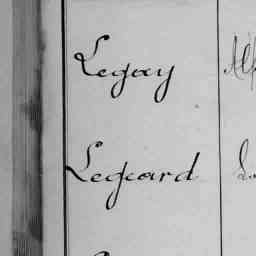 Legay
Legeard